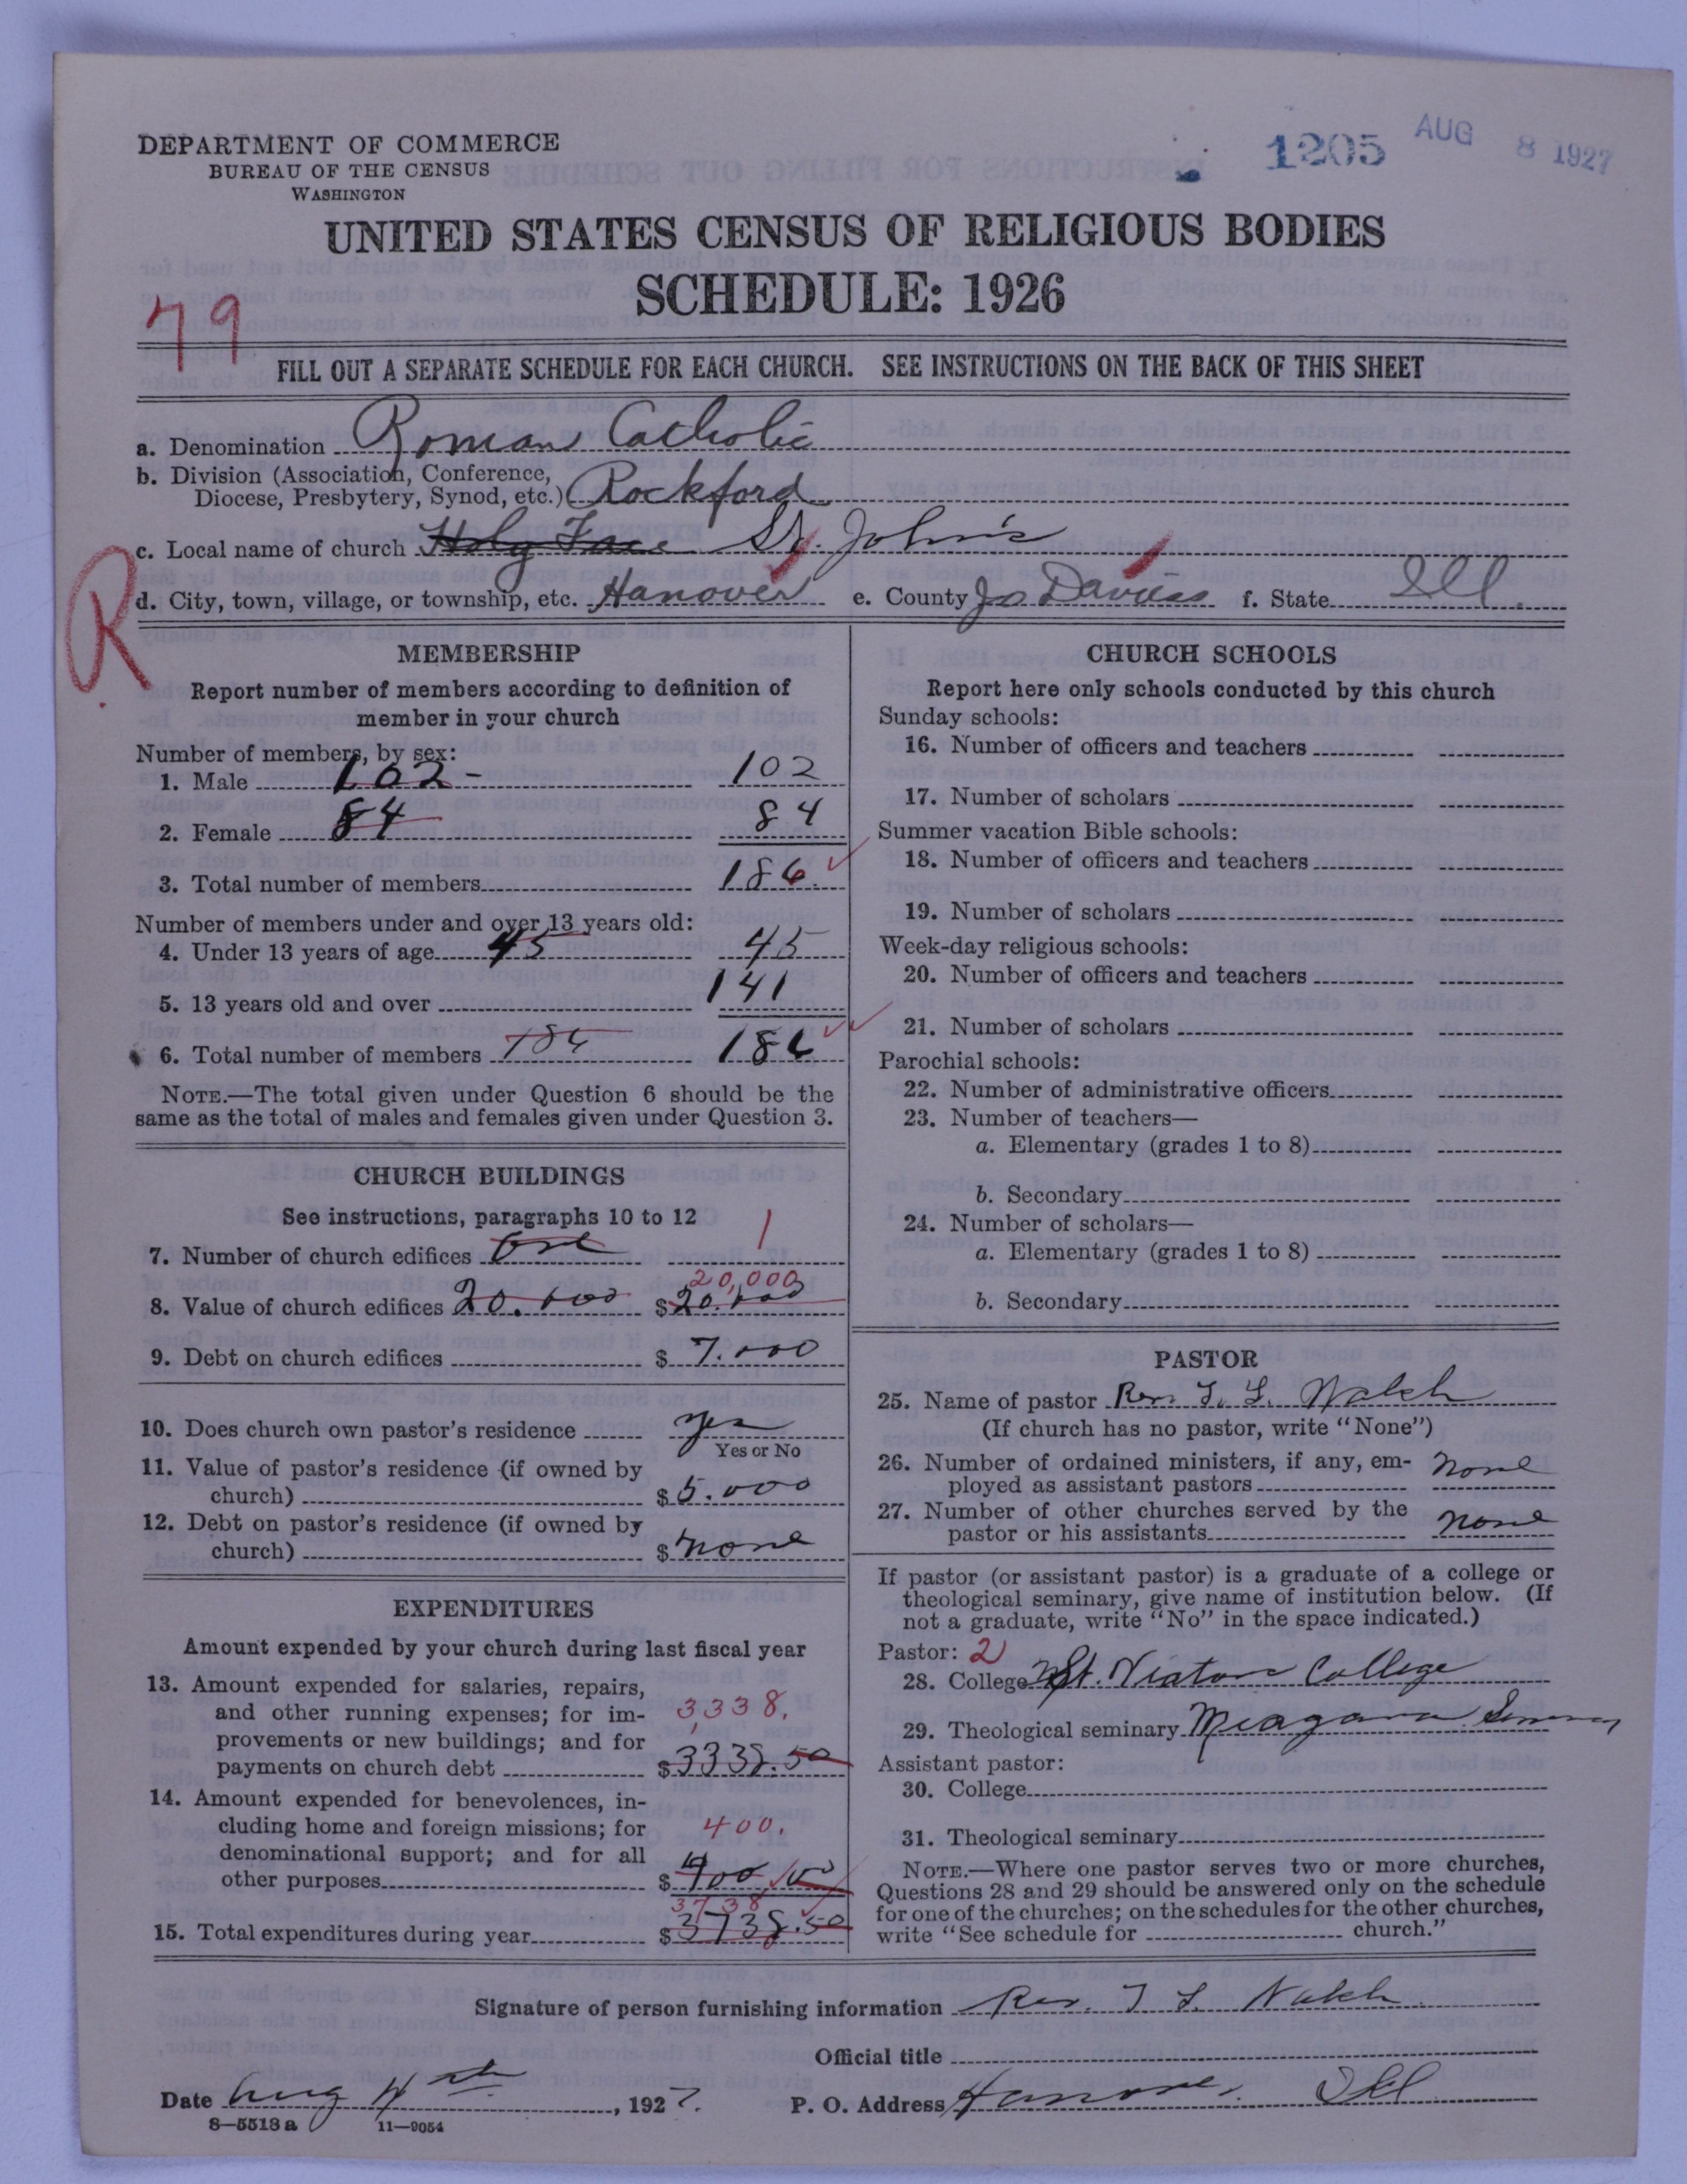 DEPARTMENT OF COMMERCE
BUREAU OF THE CENSUS
WASHINGTON
1205 AUG 8 1927
UNITED STATES CENSUS OF RELIGIOUS BODIES
SCHEDULE: 1926
79
FILL OUT A SEPARATE SCHEDULE FOR EACH CHURCH. SEE INSTRUCTIONS ON THE BACK OF THIS SHEET
a. Denomination Roman Catholic
b. Division (Association, Conference,
Diocese, Presbytery, Synod, etc.) Rockford
c. Local name of church Holy Face St. John's
R
d. City, town, village, or township, etc. Hanover e. County Jo Daviess f. State Ill.
MEMBERSHIP
Report number of members according to definition of
member in your church
Number of members, by sex:
1. Male 102- 102
2. Female 84 84
3. Total number of members 186
Number of members under and over 13 years old:
4. Under 13 years of age 45 45
5. 13 years old and over 141
6. Total number of members 186 186
NOTE.—The total given under Question 6 should be the
same as the total of males and females given under Question 3.
CHURCH BUILDINGS
See instructions, paragraphs 10 to 12
7. Number of church edifices one 1
20,000
8. Value of church edifices 20.000 $20.000
9. Debt on church edifices $7.000
10. Does church own pastor's residence yes
Yes or No
11. Value of pastor's residence (if owned by
church) $5.000
12. Debt on pastor's residence (if owned by
church) $none
EXPENDITURES
Amount expended by your church during last fiscal year
13. Amount expended for salaries, repairs,
and other running expenses; for im- 3338.
provements or new buildings; and for
payments on church debt $3338.50
14. Amount expended for benevolences, in-
cluding home and foreign missions; for 400.
denominational support; and for all
other purposes $400.00
3738
15. Total expenditures during year $3738.50
CHURCH SCHOOLS
Report here only schools conducted by this church
Sunday schools:
16. Number of officers and teachers
17. Number of scholars
Summer vacation Bible schools:
18. Number of officers and teachers
19. Number of scholars
Week-day religious schools:
20. Number of officers and teachers
21. Number of scholars
Parochial schools:
22. Number of administrative officers
23. Number of teachers—
a. Elementary (grades 1 to 8)
b. Secondary
24. Number of scholars—
a. Elementary (grades 1 to 8)
b. Secondary
PASTOR
25. Name of pastor Rev. T. L. Walsh
(If church has no pastor, write "None")
26. Number of ordained ministers, if any, em-
ployed as assistant pastors none
27. Number of other churches served by the
pastor or his assistants none
If pastor (or assistant pastor) is a graduate of a college or
theological seminary, give name of institution below. (If
not a graduate, write "No" in the space indicated.)
Pastor: 2
28. College St. Viators College
29. Theological seminary Niagara Seminary
Assistant pastor:
30. College
31. Theological seminary
NOTE.—Where one pastor serves two or more churches,
Questions 28 and 29 should be answered only on the schedule
for one of the churches; on the schedules for the other churches,
write "See schedule for church."
Signature of person furnishing information Rev. T L. Walsh
Official title
Date Aug 4th, 1927. P. O. Address Hanover. Ill
8—5518 a 11—9054